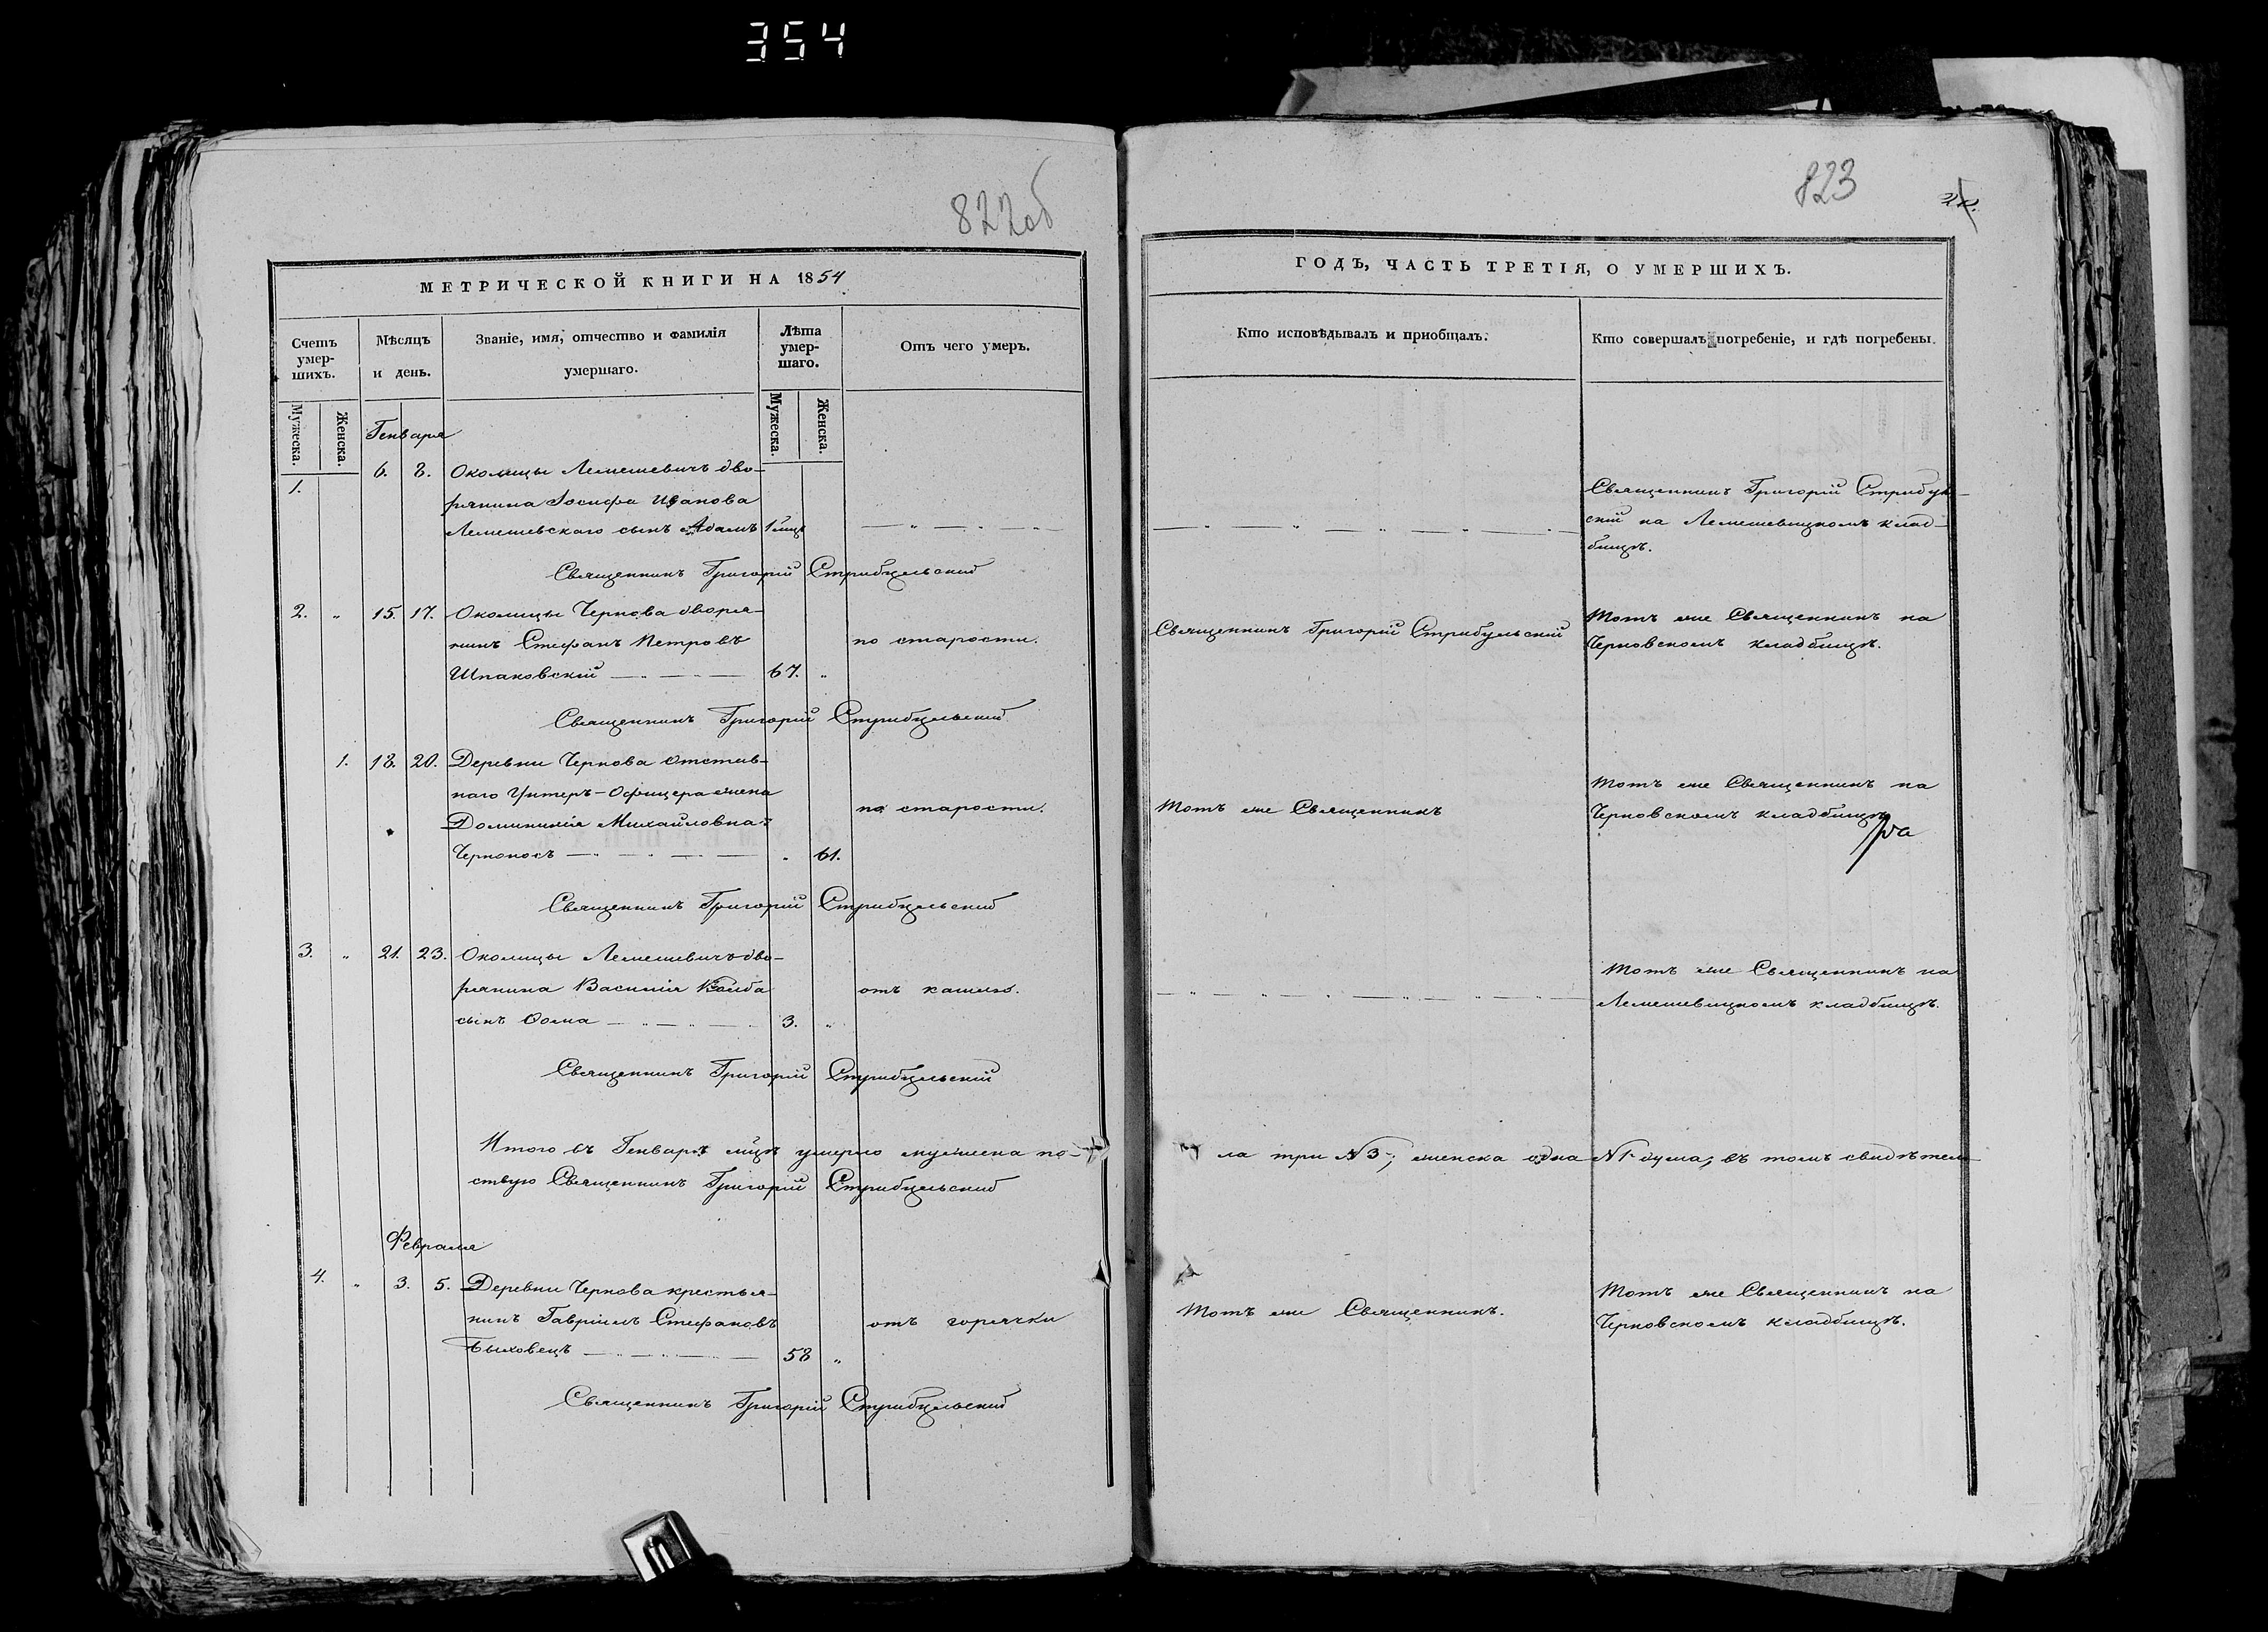 354
822об
МЕТРИЧЕСКОЙ КНИГИ НА 1854
Счетъ умер-шихъ.
Мѣсяцъ и день.
Званіе, имя, отчество и фамилія умершаго.
Лѣта умер-шаго.
Отъ чего умеръ.
Мужеска.
Женска.
Мужеска.
Женска.
Генваря
1. 6. 8. Околицы Лемешевичъ дво-
рянина Іосифа Иванова
Лемешевскаго сынъ Адамъ 1 мцъ
Священникъ Григорій Стрибульскій
2. " 15. 17. Околицы Чернова дворя-
нинъ Стефанъ Петровъ по старости.
Шпаковскій 67. "
Священникъ Григорій Стрибульскій
1. 18. 20. Деревни Чернова отстав-
наго Унтеръ-Офицера жена
Доминикія Михайловна по старости.
Черноносъ " 61.
Священникъ Григорій Стрибульскій
3. " 21. 23. Околицы Лемешевичъ дво-
рянина Василія отъ кашлю.
сынъ Ѳома 3. "
Священникъ Григорій Стрибульскій
Итого въ Генварѣ мцѣ умерло мужеска по-
ствую Священникъ Григорій Стрибульскій
Февраля
4. " 3. 5. Деревни Чернова крестья-
нинъ Гавріилъ Стефановъ отъ горячки
Быховецъ 58 "
Священникъ Григорій Стрибульскій
823
ГОДЪ, ЧАСТЬ ТРЕТІЯ, О УМЕРШИХЪ.
Кто исповѣдывалъ и пріобщалъ.
Кто совершалъ погребеніе, и гдѣ погребены.
Священникъ Григорій Стрибуль-
скій на Лемешевицкомъ клад-
бищѣ.
Священникъ Григорій Стрибульскій
Тотъ же Священникъ на
Черновскомъ кладбищѣ.
Тотъ же Священникъ
Тотъ же Священникъ на
Черновскомъ кладбищѣ
Тотъ же Священникъ на
Лемешевицкомъ кладбищѣ.
ла три №3, женска одна №1 душа; въ томъ свидѣтель-
Тотъ же Священникъ.
Тотъ же Священникъ на
Черновскомъ кладбищѣ.